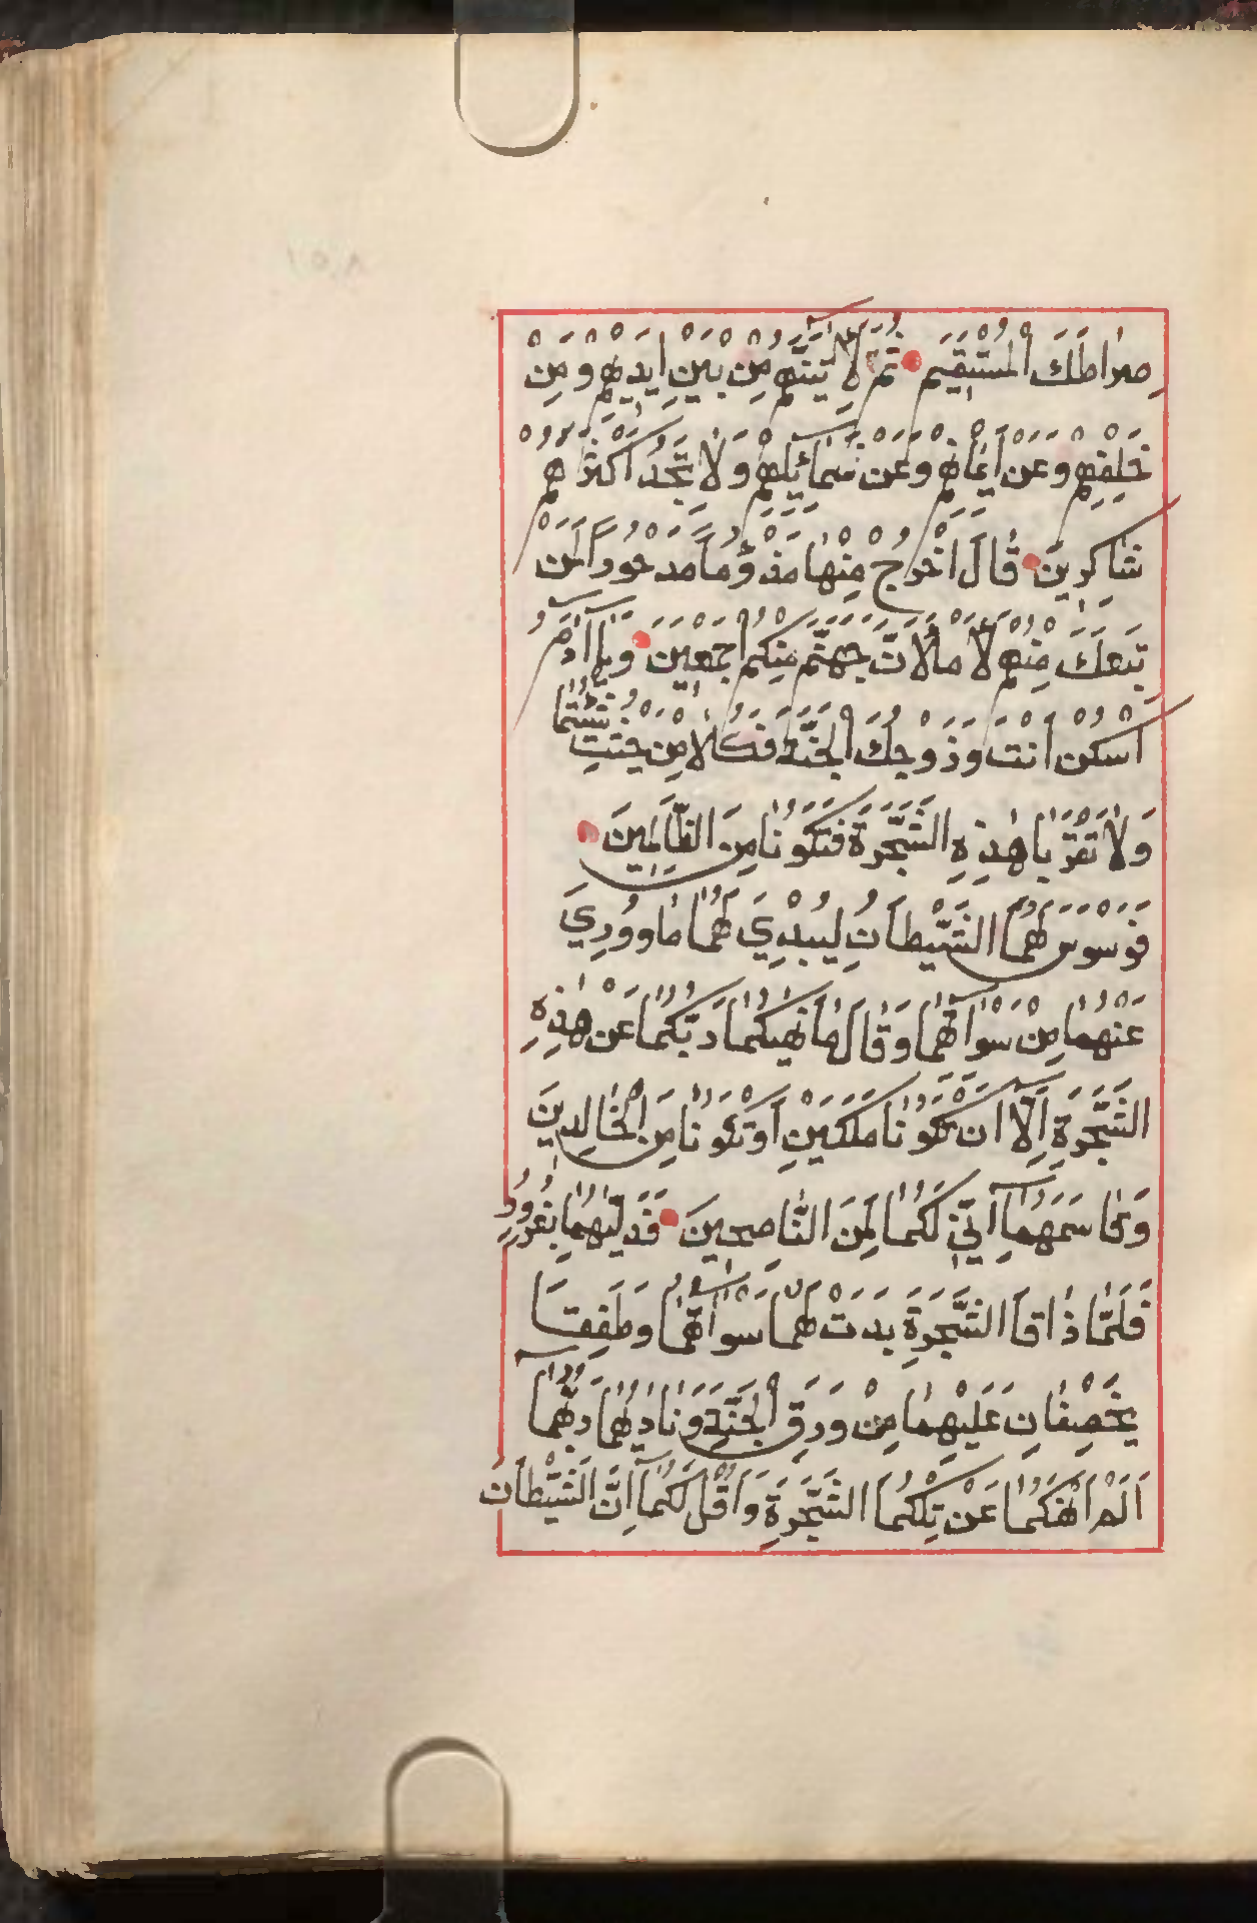 صِرَاطَكَ الْمُسْتَقِيمَ ثُمَّ لَآتِيَنَّهُمْ مِنْ بَيْنِ اَيْدِيهِمْ وَمِنْ
خَلْفِهِمْ وَعَنْ اَيْمَانِهِمْ وَعَنْ شَمَائِلِهِمْ وَلَا تَجِدُ اَكْثَرَهُمْ
شَاكِرِينَ قَالَ اخْرُجْ مِنْهَا مَذْؤُمًا مَدْحُورًا لَمَنْ
تَبِعَكَ مِنْهُمْ لَأَمْلَأَنَّ جَهَنَّمَ مِنْكُمْ اَجْمَعِينَ وَيَا آدَمُ
اسْكُنْ اَنْتَ وَزَوْجُكَ الْجَنَّةَ فَكُلَا مِنْ حَيْثُ شِئْتُمَا
وَلَا تَقْرَبَا هٰذِهِ الشَّجَرَةَ فَتَكُونَا مِنَ الظَّالِمِينَ
فَوَسْوَسَ لَهُمَا الشَّيْطَانُ لِيُبْدِيَ لَهُمَا مَا وُورِيَ
عَنْهُمَا مِنْ سَوْآتِهِمَا وَقَالَ مَا نَهٰيكُمَا رَبُّكُمَا عَنْ هٰذِهِ
الشَّجَرَةِ اِلَّا اَنْ تَكُونَا مَلَكَيْنِ اَوْ تَكُونَا مِنَ الْخَالِدِينَ
وَقَاسَمَهُمَا اِنِّي لَكُمَا لَمِنَ النَّاصِحِينَ فَدَلّٰيهُمَا بِغُرُورٍ
فَلَمَّا ذَاقَا الشَّجَرَةَ بَدَتْ لَهُمَا سَوْآتُهُمَا وَطَفِقَا
يَخْصِفَانِ عَلَيْهِمَا مِنْ وَرَقِ الْجَنَّةِ وَنَادٰيهُمَا رَبُّهُمَا
اَلَمْ اَنْهَكُمَا عَنْ تِلْكُمَا الشَّجَرَةِ وَاَقُلْ لَكُمَا اِنَّ الشَّيْطَانَ